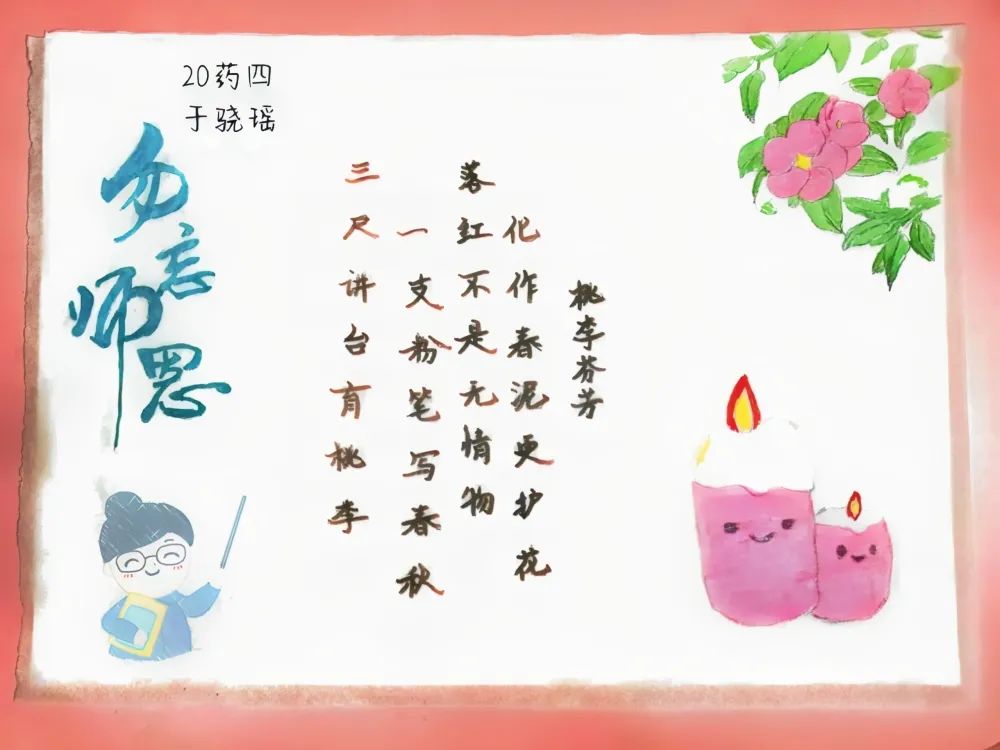 20药四
于骁瑶
勿忘师恩
三尺讲台育桃李
一支粉笔写春秋
落红不是无情物
化作春泥更护花
桃李芬芳